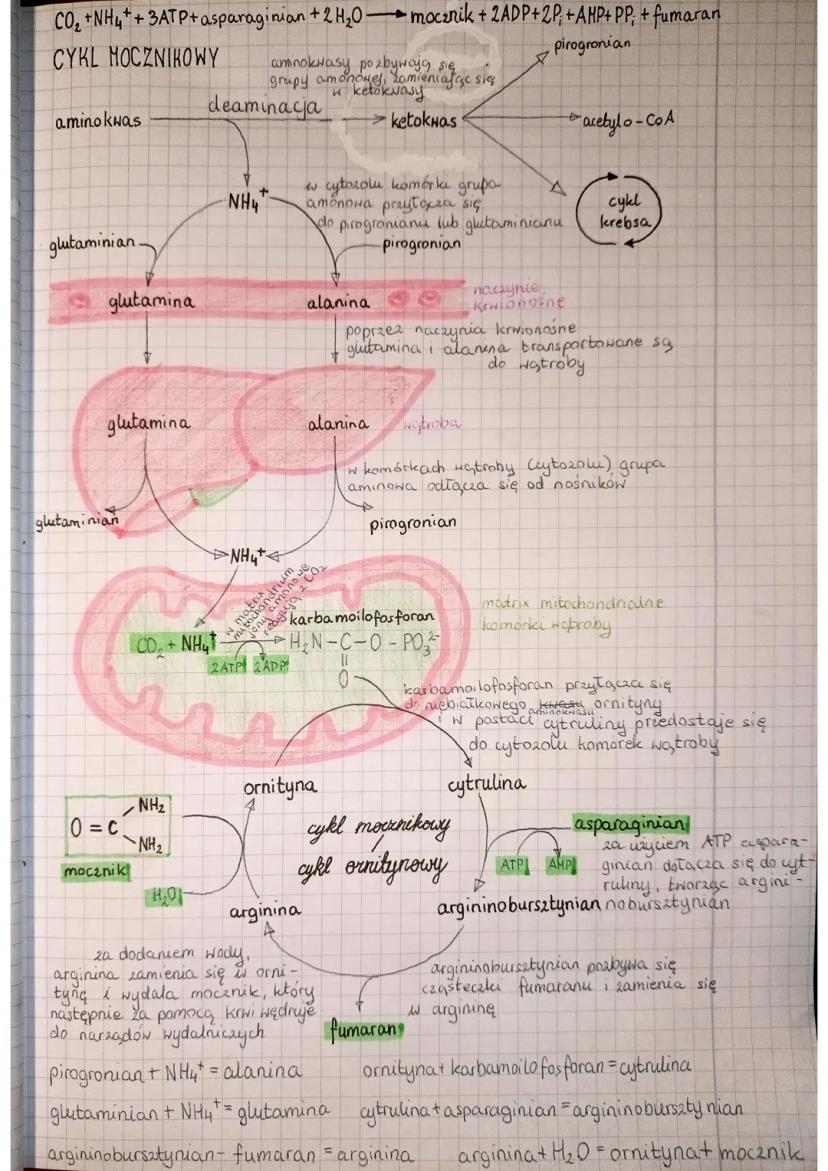 CO₂ + NH₄⁺ + 3ATP + asparaginian + 2H₂O → mocznik + 2ADP + 2Pᵢ + AMP + PPᵢ + fumaran
CYKL MOCZNIKOWY
aminokwasy pozbywają się
grupy amonowej, zamieniając się
w ketokwasy
pirogronian
aminokwas
deaminacja
ketokwas
acetylo-CoA
NH₄⁺
w cytozolu komórki grupa
amonowa przyłącza się
do pirogronianu lub glutaminianu
cykl
krebsa
glutaminian
pirogronian
glutamina
alanina
naczynie
krwionośne
poprzez naczynia krwionośne
glutamina i alanina transportowane są
do wątroby
glutamina
alanina
wątroba
w komórkach wątroby (cytozolu) grupa
aminowa odłącza się od nośników
glutaminian
pirogronian
NH₄⁺
w matrix
mitochondrium
jony amonowe
reagują z CO₂
karbamoilofosforan
matrix mitochondrialne
komórki wątroby
CO₂ + NH₄⁺
H₂N - C - O - PO₃²⁻
2ATP
2ADP
O
karbamoilofosforan przyłącza się
do niebiałkowego kwasu aminokwasu ornityny
i w postaci cytruliny przedostaje się
do cytozolu komórek wątroby
ornityna
cytrulina
NH₂
O = C
NH₂
mocznik
H₂O
cykl mocznikowy
/
cykl ornitynowy
asparaginian
ATP
AMP
za użyciem ATP aspara-
ginian dołącza się do cyt-
ruliny, tworząc argini-
nobursztynian
arginina
argininobursztynian
za dodaniem wody,
arginina zamienia się w orni-
tynę i wydala mocznik, który
następnie za pomocą krwi wędruje
do narządów wydalniczych
argininobursztynian pozbywa się
cząsteczki fumaranu i zamienia się
w argininę
fumaran
pirogronian + NH₄⁺ = alanina
ornityna + karbamoilofosforan = cytrulina
glutaminian + NH₄⁺ = glutamina
cytrulina + asparaginian = argininobursztynian
argininobursztynian - fumaran = arginina
arginina + H₂O = ornityna + mocznik